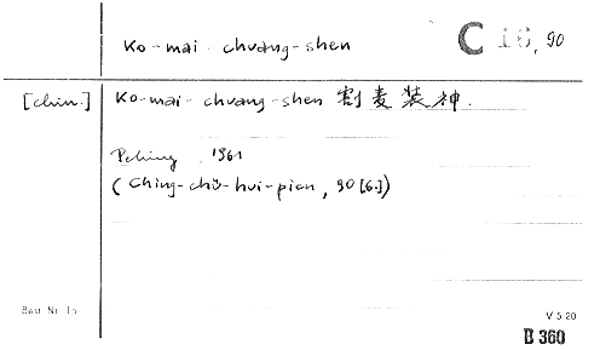 Ko-mai-chuang-shen
C 16, 90
[chin.]
Ko-mai-chuang-shen 割麦装神.
Peking, 1961
(Ching-chü-hui-pien, 90 [6.])
V 5 20
B 360